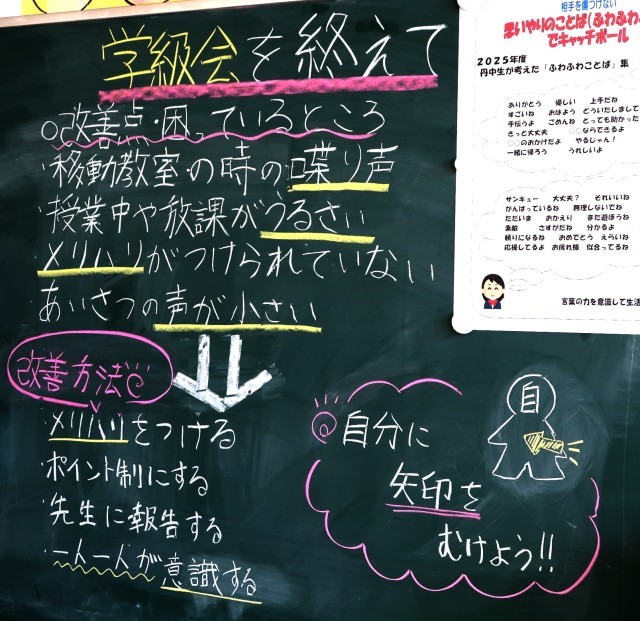 学級会を終えて
○改善点・困っているところ
・移動教室の時の喋り声
・授業中や放課がうるさい
・メリハリがつけられていない
・あいさつの声が小さい
改善方法
・メリハリをつける
・ポイント制にする
・先生に報告する
・一人一人が意識する
自分に
矢印を
むけよう!!
自
相手を傷つけない
思いやりのことば(ふわふわ
でキャッチボール
2025年度
丹中生が考えた「ふわふわことば」集
ありがとう 優しい 上手だね
すごいね おはよう どういたしまして
手伝うよ ごめんね とっても助かった
きっと大丈夫 ○ならできるよ
○○のおかげだよ やるじゃん!
一緒に帰ろう うれしいよ
サンキュー 大丈夫? それいいね
がんばっているね 無理しないでね
ただいま おかえり また遊ぼうね
素敵 さすがだね 分かるよ
頼りになるね おめでとう えらいね
応援してるよ お疲れ様 似合ってるね
言葉の力を意識して生活